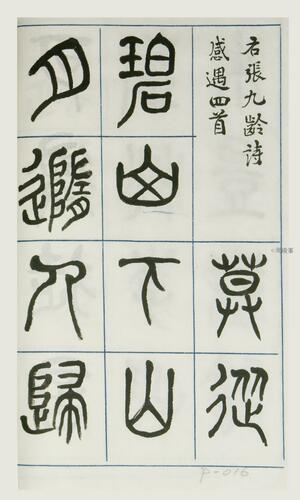 右張九齡詩
感遇四首
莫從
碧山下山
月隨人歸
P-016